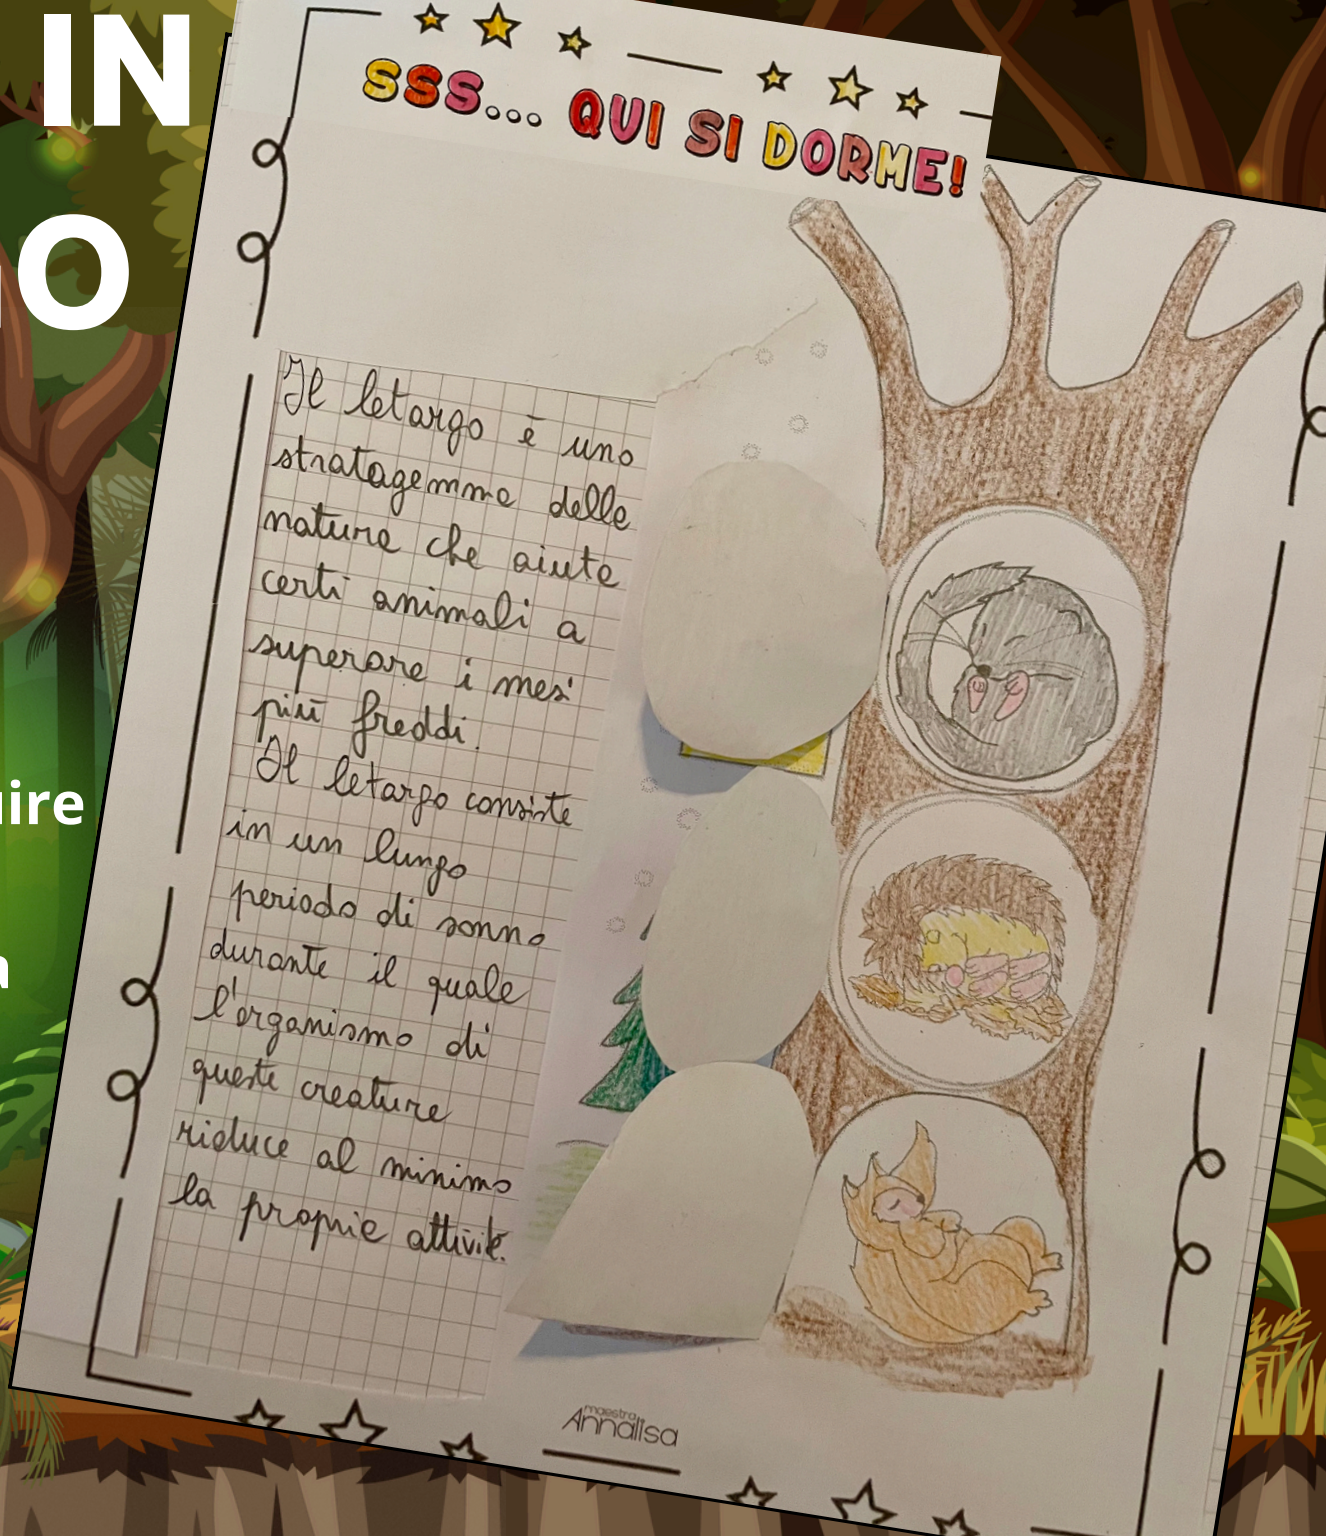 IN
O
uire
a
SSS... QUI SI DORME!
Il letargo è uno
stratagemma della
natura che aiuta
certi animali a
superare i mesi
più freddi.
Il letargo consiste
in un lungo
periodo di sonno
durante il quale
l'organismo di
queste creature
riduce al minimo
la propria attività.
maestra
Annalisa